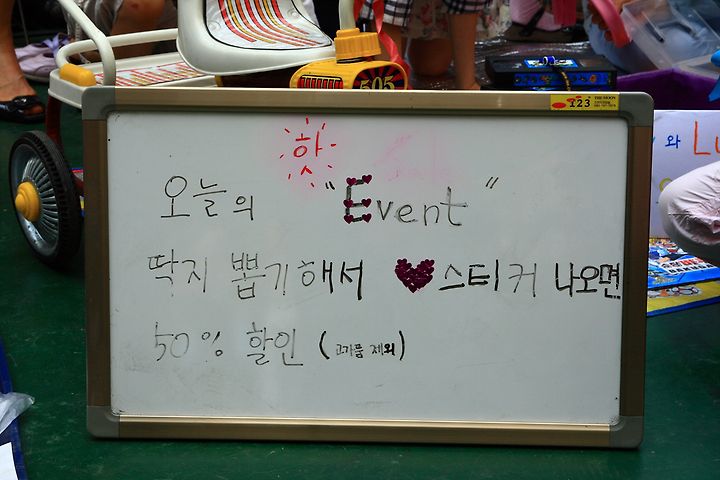 505
123
핫
오늘의 "Event"
와 Lu
딱지 뽑기해서 ♥스티커 나오면
50% 할인 (고가품 제외)